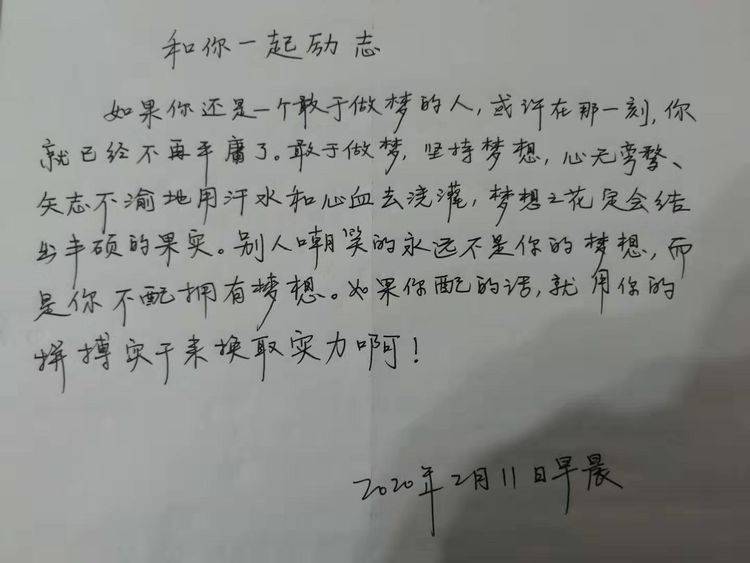 和你一起励志
如果你还是一个敢于做梦的人,或许在那一刻,你
就已经不再平庸了。敢于做梦,坚持梦想,心无旁骛、
矢志不渝地用汗水和心血去浇灌,梦想之花定会结
出丰硕的果实。别人嘲笑的永远不是你的梦想,而
是你不配拥有梦想。如果你配的话,就用你的
拼搏实干来换取实力啊!
2020年2月11日早晨